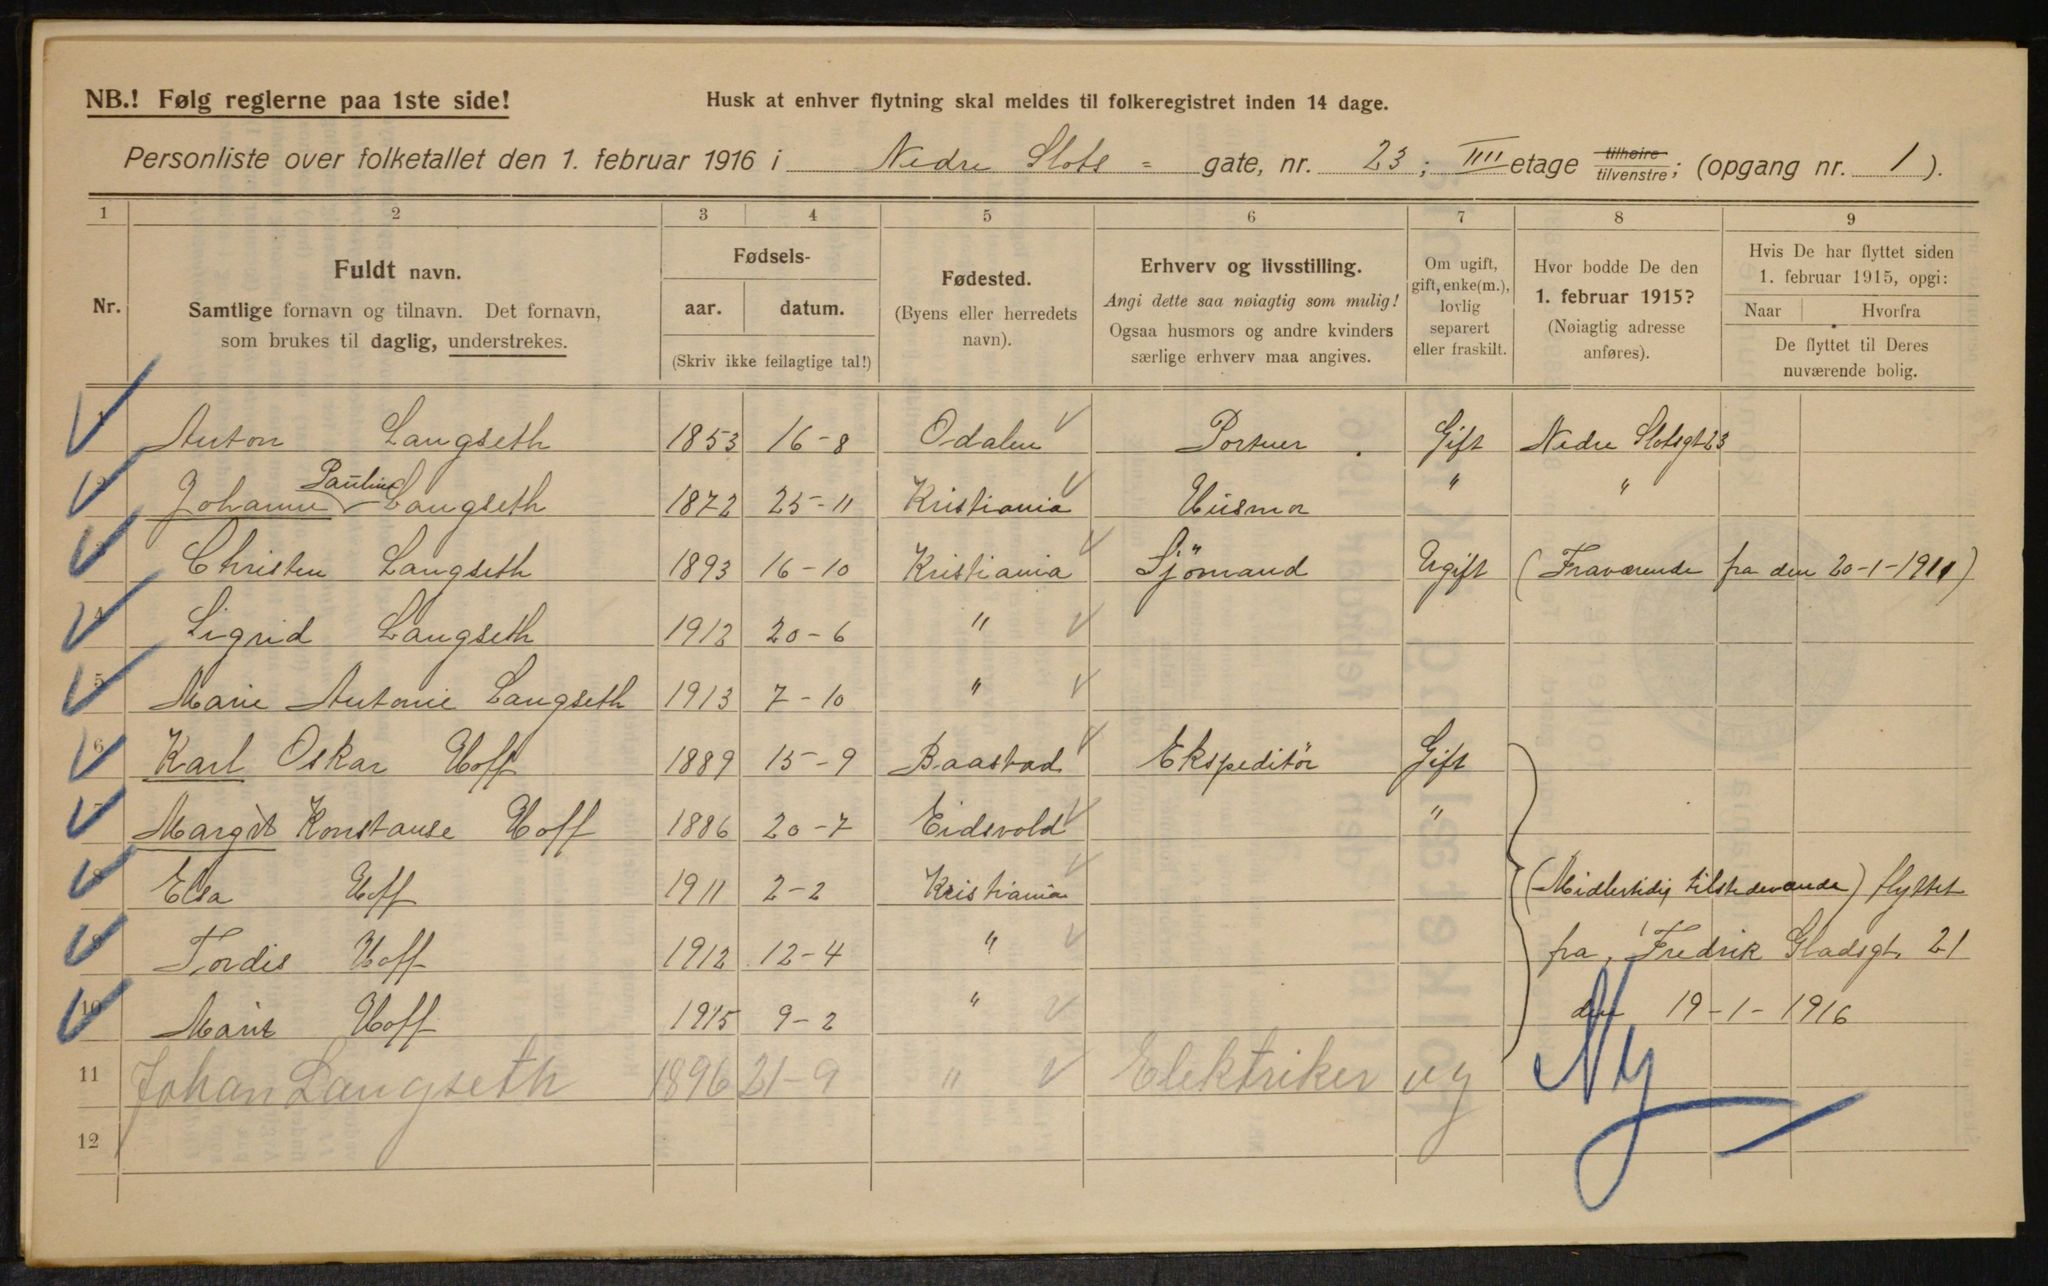 NB.! Følg reglerne paa 1ste side!
Husk at enhver flytning skal meldes til folkeregistret inden 14 dage.
Personliste over folketallet den 1. februar 1916 i Nedre Slots = gate, nr. 23; IIII etage tilhøire tilvenstre; (opgang nr. 1).
1 2 3 4 5 6 7 8 9
Nr.
Fuldt navn.
Samtlige fornavn og tilnavn. Det fornavn,
som brukes til daglig, understrekes.
Fødsels-
aar. datum.
(Skriv ikke feilagtige tal!)
Fødested.
(Byens eller herredets
navn).
Erhverv og livsstilling.
Angi dette saa nøiagtig som mulig!
Ogsaa husmors og andre kvinders
særlige erhverv maa angives.
Om ugift,
gift, enke(m.),
lovlig
separert
eller fraskilt.
Hvor bodde De den
1. februar 1915?
(Nøiagtig adresse
anføres).
Hvis De har flyttet siden
1. februar 1915, opgi:
Naar Hvorfra
De flyttet til Deres
nuværende bolig.
1 Anton Langseth 1853 16-8 Odalen Portner Gift Nedre Slotsgt 23
2 Johanne Pauline Langseth 1872 25-11 Kristiania Husmor " "
3 Christen Langseth 1893 16-10 Kristiania Sjömand Ugift (Fraværende fra den 20-1-1911)
4 Sigrid Langseth 1912 20-6 "
5 Marie Antonie Langseth 1913 7-10 "
6 Karl Oskar Hoff 1889 15-9 Baastad Ekspeditör Gift
7 Margit Konstanse Hoff 1886 20-7 Eidsvold "
8 Elsa Hoff 1911 2-2 Kristiania (Midlertidig tilstedevænde) flyttet
9 Tordis Hoff 1912 12-4 " fra, Fredrik Gladsgt. 21
10 Marit Hoff 1915 9-2 " den 19-1-1916
11 Johan Langseth 1896 21-9 " Elektriker ug Ny
12